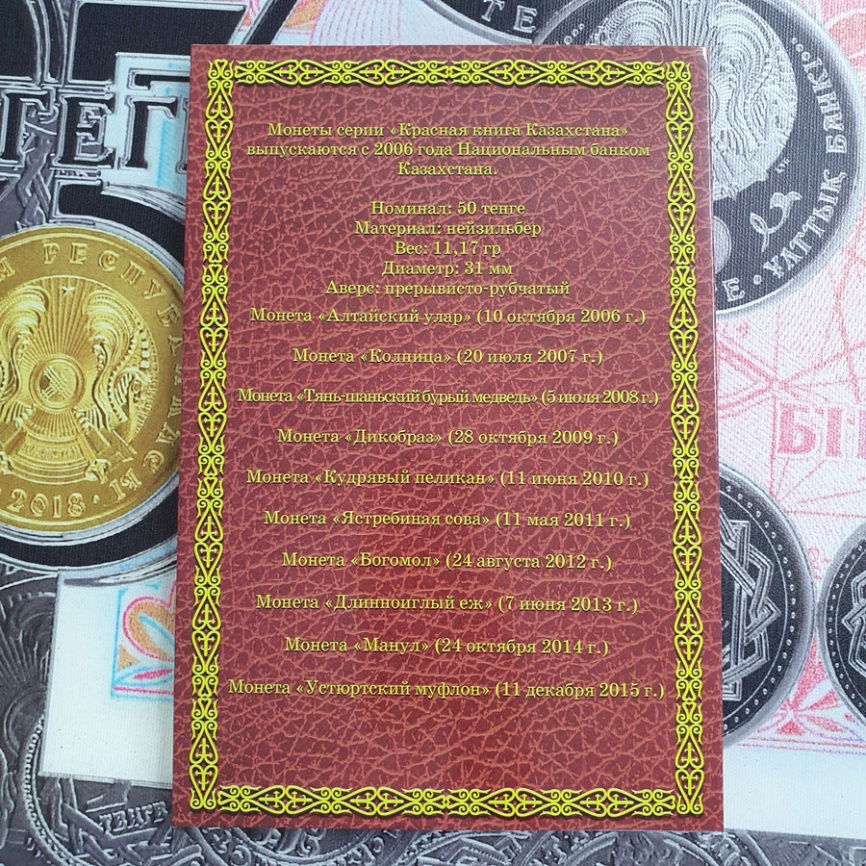 Монеты серии «Красная книга Казахстана»
выпускаются с 2006 года Национальным банком
Казахстана.
Номинал: 50 тенге
Материал: нейзильбер
Вес: 11,17 гр
Диаметр: 31 мм
Аверс: прерывисто-рубчатый
Монета «Алтайский улар» (10 октября 2006 г.)
Монета «Колпица» (20 июля 2007 г.)
Монета «Тянь-шаньский бурый медведь» (5 июля 2008 г.)
Монета «Дикобраз» (28 октября 2009 г.)
Монета «Кудрявый пеликан» (11 июня 2010 г.)
Монета «Ястребиная сова» (11 мая 2011 г.)
Монета «Богомол» (24 августа 2012 г.)
Монета «Длинноиглый еж» (7 июня 2013 г.)
Монета «Манул» (24 октября 2014 г.)
Монета «Устюртский муфлон» (11 декабря 2015 г.)
ҰЛТТЫҚ БАНКІ
2018
БІ
ТЕҢГЕ